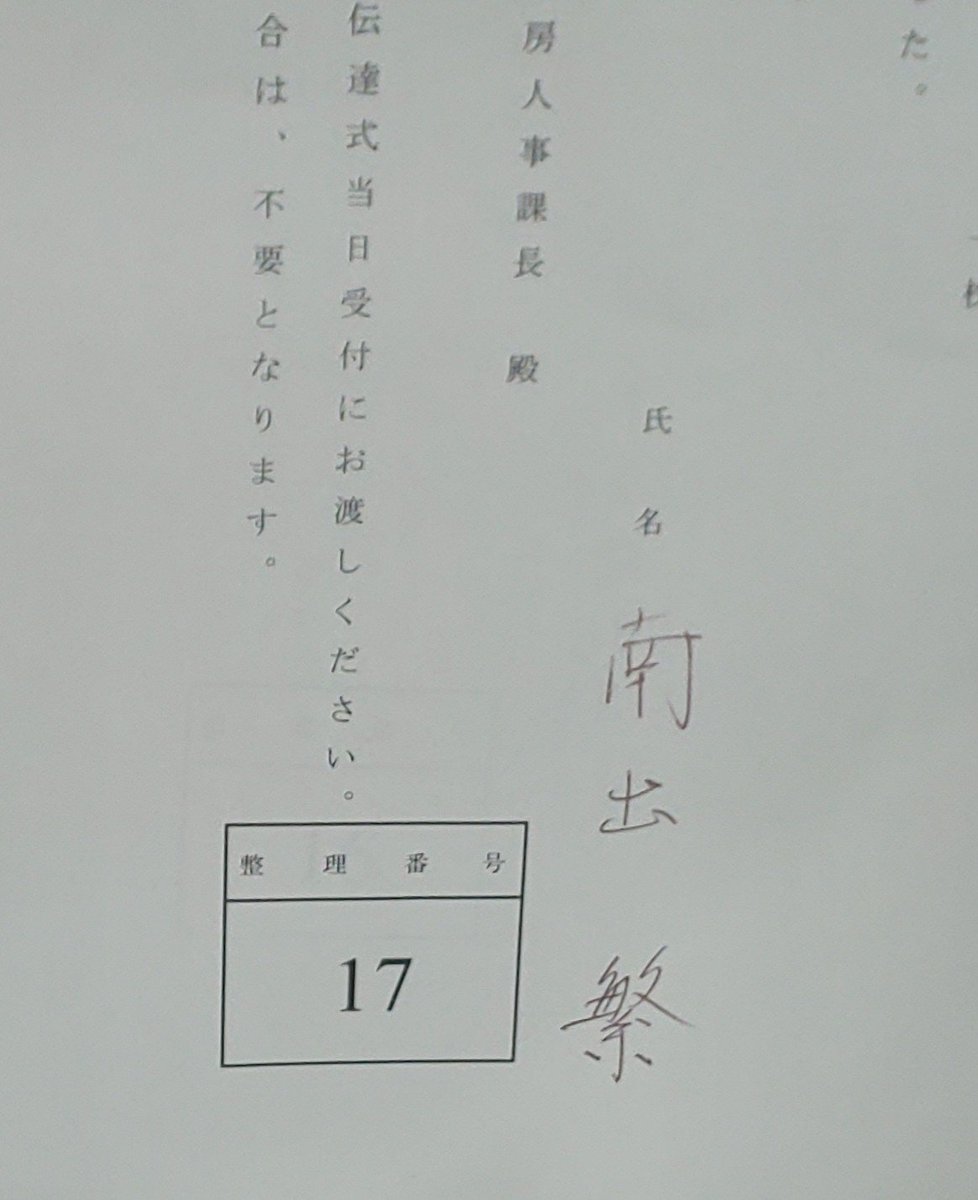 た。
氏名 南出 繁
房人事課長 殿
伝達式当日受付にお渡しください。
合は、不要となります。
整理番号
17